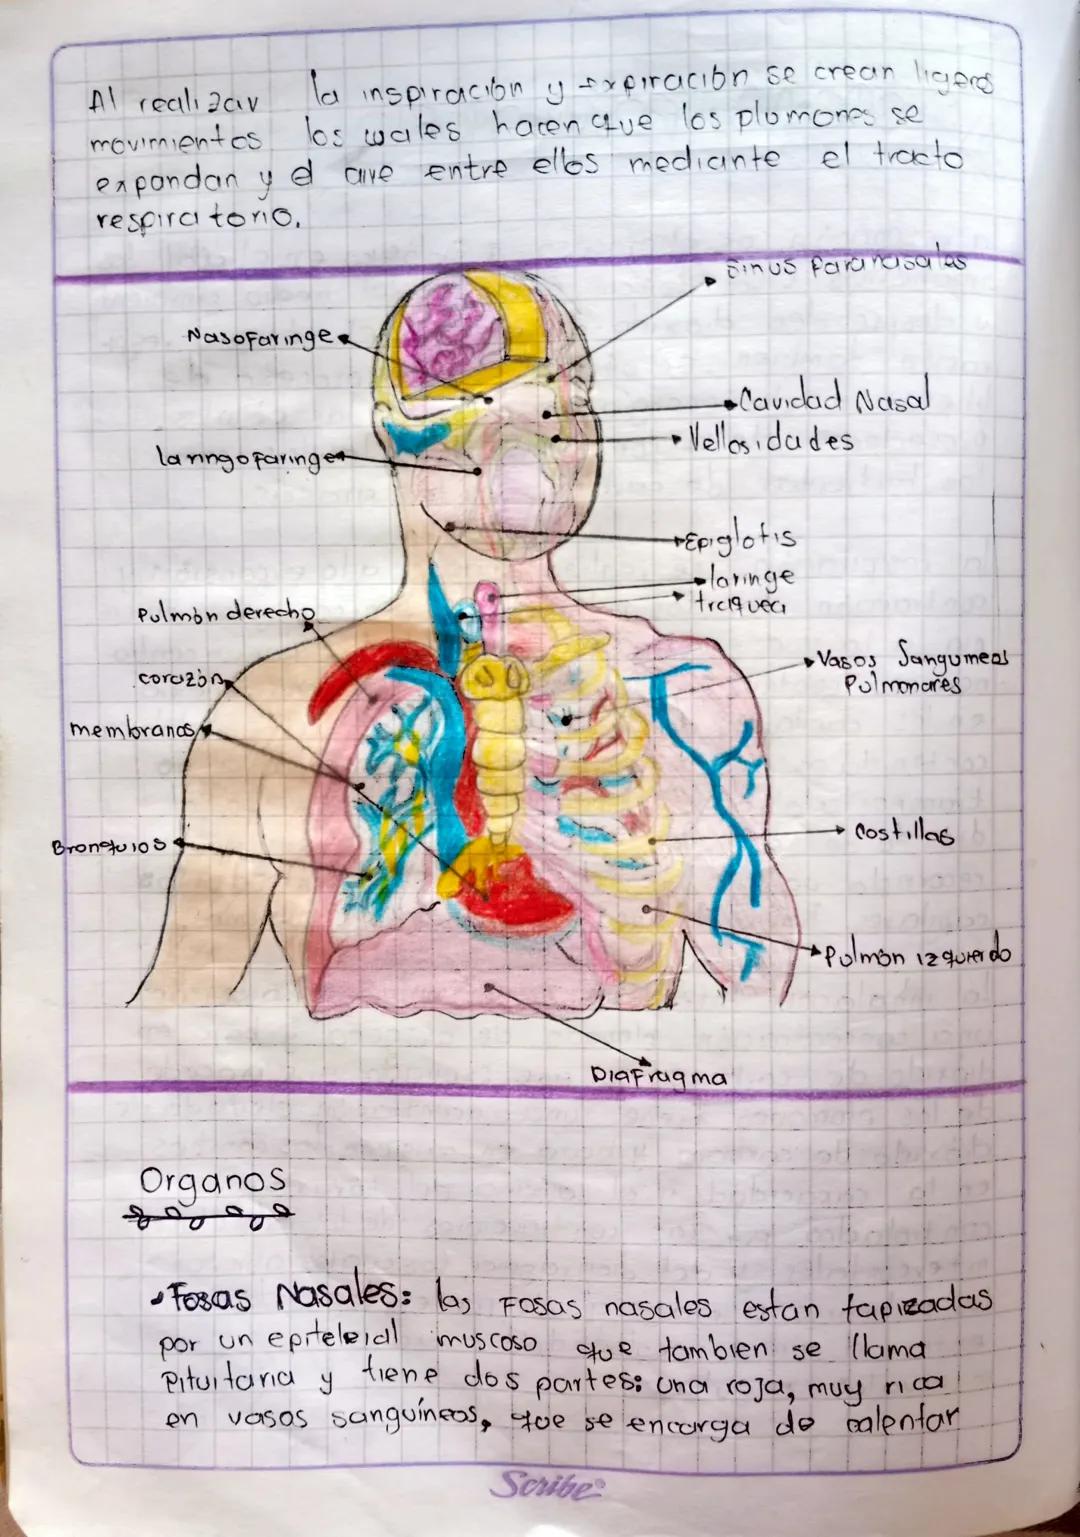 Al realizar la inspiración y expiración se crean ligeros
movimientos los cuales hacen que los plumones se
expandan y el aire entre ellos mediante el tracto
respiratorio.
Sinus Paranasales
Nasofaringe
Cavidad Nasal
Vellosidades
laringofaringe
Epiglotis
laringe
traquea
Pulmón derecho
Vasos Sanguineos
Pulmonares
corazón
membranas
Costillas
Bronquios
Pulmón izquierdo
Diafragma
Organos
Fosas Nasales: las Fosas nasales estan tapizadas
por un epiteleial muscoso que tambien se llama
Pituitaria y tiene dos partes: una roja, muy rica
en vasos sanguíneos, que se encarga de calentar
Scribe